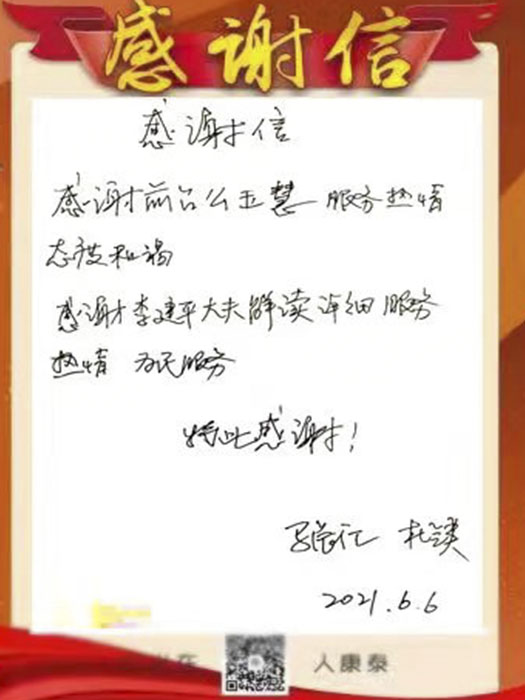 感谢信
感谢信
感谢前台么玉慧 服务热情
态度和谒
感谢李建平大夫解读详细 服务
热情 为民服务
特此感谢!
杜
2021.6.6
人康泰